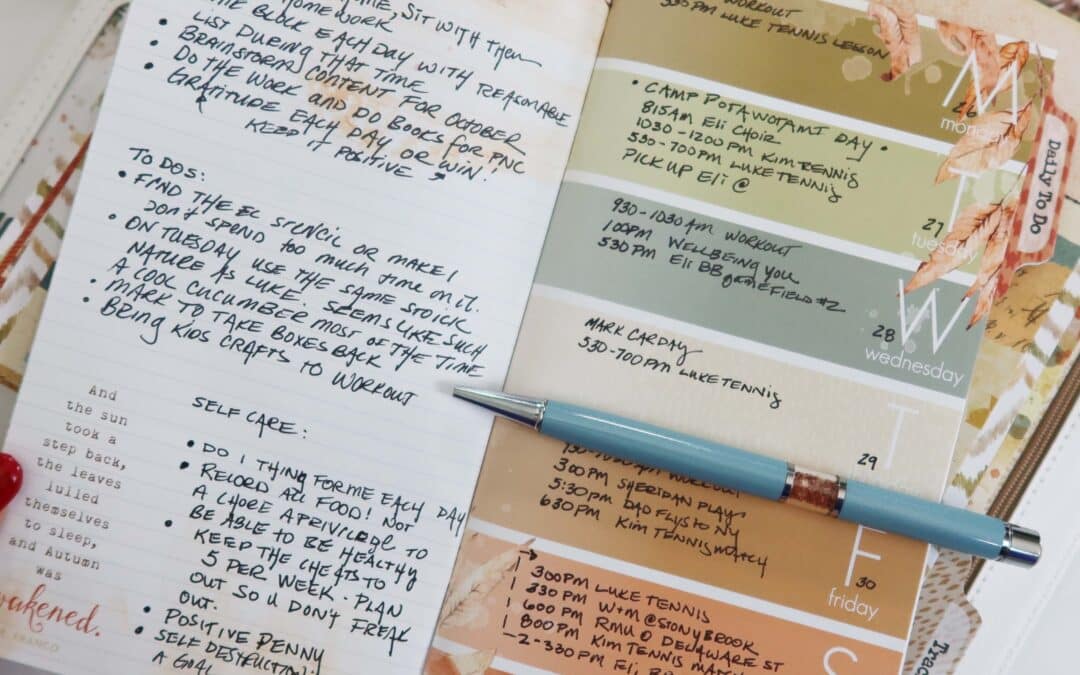 SIT WITH THEM
HOMEWORK
BLOCK EACH DAY WITH REASONABLE
LIST DURING THAT TIME
• BRAINSTORM CONTENT FOR OCTOBER
• DO THE WORK AND DO BOOKS FOR PNC
• GRATITUDE EACH DAY OR WIN!
KEEP IT POSITIVE
TO DOS:
• FIND THE EC STENCIL OR MAKE!
DON'T SPEND TOO MUCH TIME ON IT.
• ON TUESDAY USE THE SAME STOICK
NATURE AS LUKE. SEEMS LIKE SUCH
A COOL CUCUMBER MOST OF THE TIME
• MARK TO TAKE BOXES BACK
• BRING KIDS CRAFTS TO WORKOUT
And
the sun
took a
step back,
the leaves
lulled
themselves
to sleep,
and Autumn
was
awakened.
SELF CARE:
• DO 1 THING FOR ME EACH DAY
• RECORD ALL FOOD! NOT
A CHORE A PRIVILEGE TO
BE ABLE TO BE HEALTHY
• KEEP THE CHEATS TO
5 PER WEEK. PLAN
OUT SO U DON'T FREAK
OUT.
• POSITIVE PENNY
• SELF DESTRUCTION:
A GOAL
WORKOUT
530 PM LUKE TENNIS LESSON
M
26
monday
• CAMP POTAWOTAMI DAY •
815AM Eli CHOIR
1030-1200 PM KIM TENNIS
530-700 PM LUKE TENNIS
PICK UP Eli @
T
27
tuesday
930-1030 AM WORKOUT
100PM WELLBEING YOU
530 PM Eli BB game FIELD #2
W
28
wednesday
MARK CAR DAY
530-700 PM LUKE TENNIS
T
29
WORKOUT
300 PM SHERIDAN PLAYS
5:30 PM DAD FLYS TO NY
630 PM KIM TENNIS MATCH
F
30
friday
300 PM LUKE TENNIS
330 PM W+M @ STONYBROOK
600 PM RMU @ DELAWARE ST
800 PM KIM TENNIS MATCH
2-330 PM Eli
S
Daily To Do